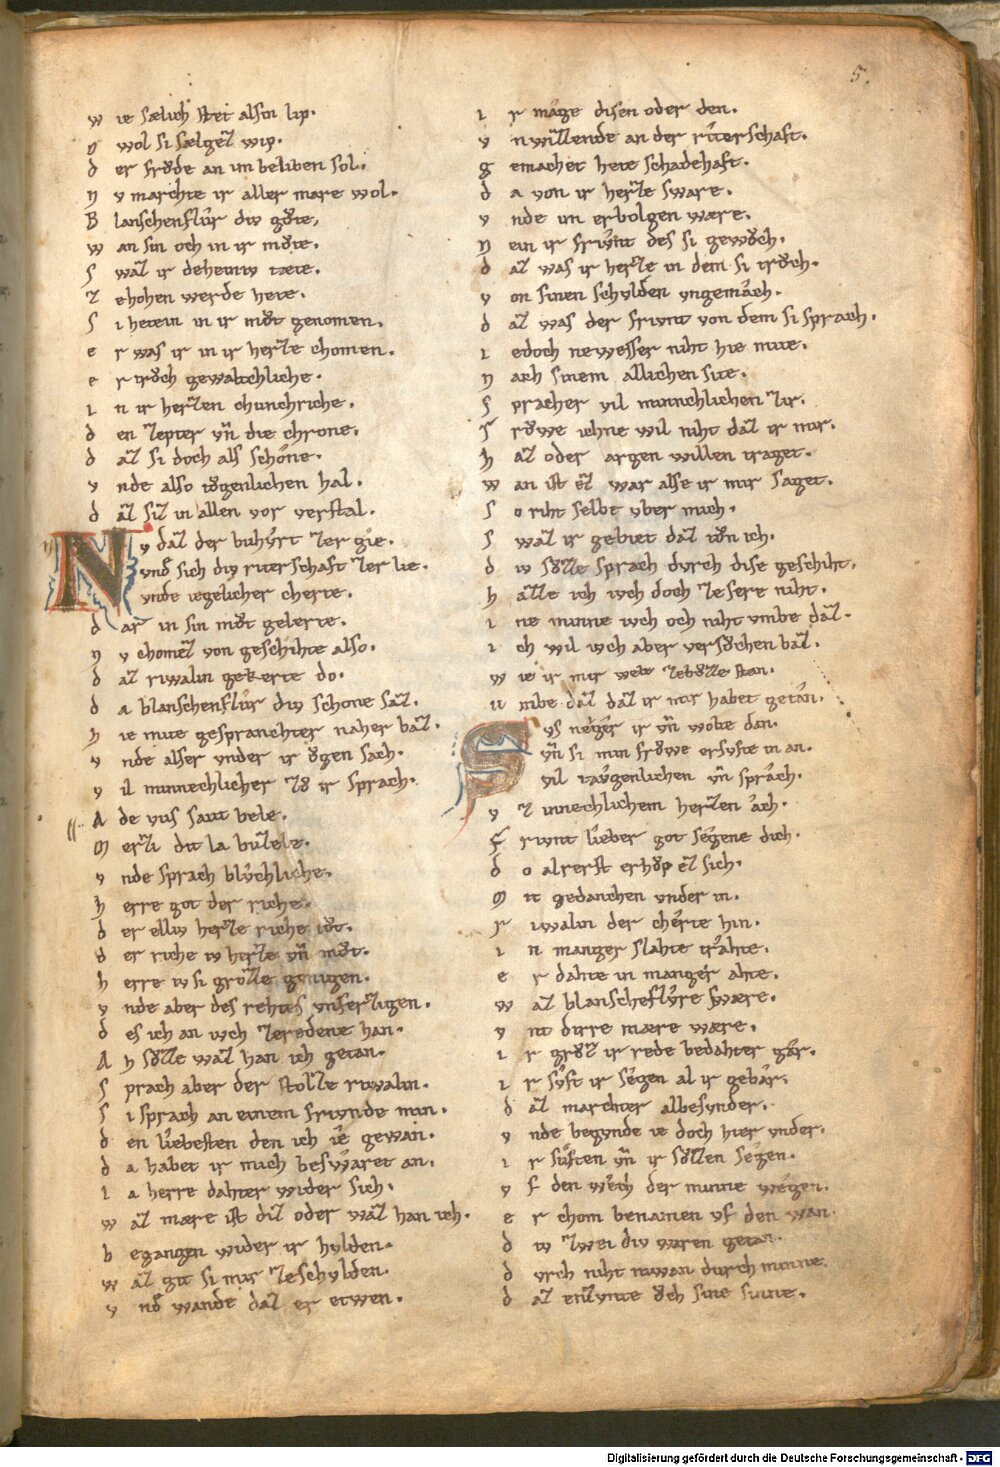 5.
w ie sælich stet alson lip.
n wol si sælgez wip.
d er frǒde an im beliben sol.
n v marchte ir aller mare wol.
B lanschenflůr div gǒte,
w an sin och in ir mǒte.
S waz ir deheiniv tæte.
z ehohen werde hete.
S i hetein in ir mǒt genomen.
e r was ir in ir herze chomen.
e r trǒch gewaltchliche.
i n ir herzen chunchriche.
d en zepter vn̄ die chrone.
d az si doch als schóne.
v nde also tǒgenlichen hal.
d az siz in allen vor verstal.
N v daz der buhyrt zer gie.
vnd sich div riterschaft zer lie.
vnde iegelicher cherte.
d ar in sin mǒt gelerte.
n v chomez von geschihte also.
d az riwalin gekerte do.
d a blanschenflůr div schone saz.
h ie mite gesprancht er naher baz.
v nde alser vnder ir ǒgen sach.
v il minnechlicher zǒ ir sprach.
A de vus saut bele.
M erzi dit la buzele.
v nde sprach blychliche.
h erre got der riche.
d er elliv herze riche tǒt.
d er riche iv herze vn̄ mǒt.
h erre iv si grozze genigen.
v nde aber des rehtes vnferzigen.
d es ich an iuch zeredene han.
A h sǒzze waz han ich getan.
S prach aber der stolze riwalin.
S i sprach an einem frivnde min.
d en liebesten den ich ie gewan.
d a habet ir mich beswaret an.
i a herre dahter wider sich.
w az mære ist diz oder waz han ich.
b egangen wider ir hylden.
w az git si mir ze schylden.
v nd wande daz er etwen.
i r mage disen oder den.
v nwizzende an der riterschaft.
g emachet hete schadehaft.
d a von ir herze sware.
v nde im erbolgen wære.
n ein ir frivnt des si gewǒch.
d az was ir herze in dem si trǒch.
v on sinen schylden vngemach.
d az was der frivnt von dem si sprach.
i edoch newesser niht hie mite.
n ach sinem allichen site.
S pracher vil minnechlichen zir.
f rǒwe ichne wil niht daz ir mir.
h az oder argen willen traget.
w an ist ez war alse ir mir saget.
S o riht selbe vber mich.
S waz ir gebiet daz tǒn ich.
d iv sǒzze sprach dvrch dise geschiht.
h azze ich iuch doch zesere niht.
i ne minne iuch och niht vmbe daz.
i ch wil iuch aber versǒchen baz.
w ie ir mir wete zebǒzze stan.
u mbe daz daz ir mir habet getan.
S vs neiger ir vn̄ wolte dan.
vn̄ si min frǒwe ersyfte in an.
vil tavgenlichen vn̄ sprach.
v z innechlichem herzen ach.
F rivnt lieber got segene dich.
d o alrerst erhǒp ez sich.
M it gedanchen vnder in.
r iwalin der cherte hin.
i n manger slahte trahte.
e r dahte in manger ahte.
w az blanscheflvre swære.
v nt dirre mære wære.
i r grǒz ir rede bedahter gar.
i r syft ir segen al ir gebar.
d az marchter albesvnder.
v nde begvnde ie doch hier vnder.
i r suften vn̄ ir sǒzzen segen.
v f den wech der minne wegen.
e r chom benamen vf den wan
d iv zwei div waren getan.
d vrch niht niwan durch minne
d az enzvnte ǒch sine sinne.
Digitalisierung gefördert durch die Deutsche Forschungsgemeinschaft - DFG